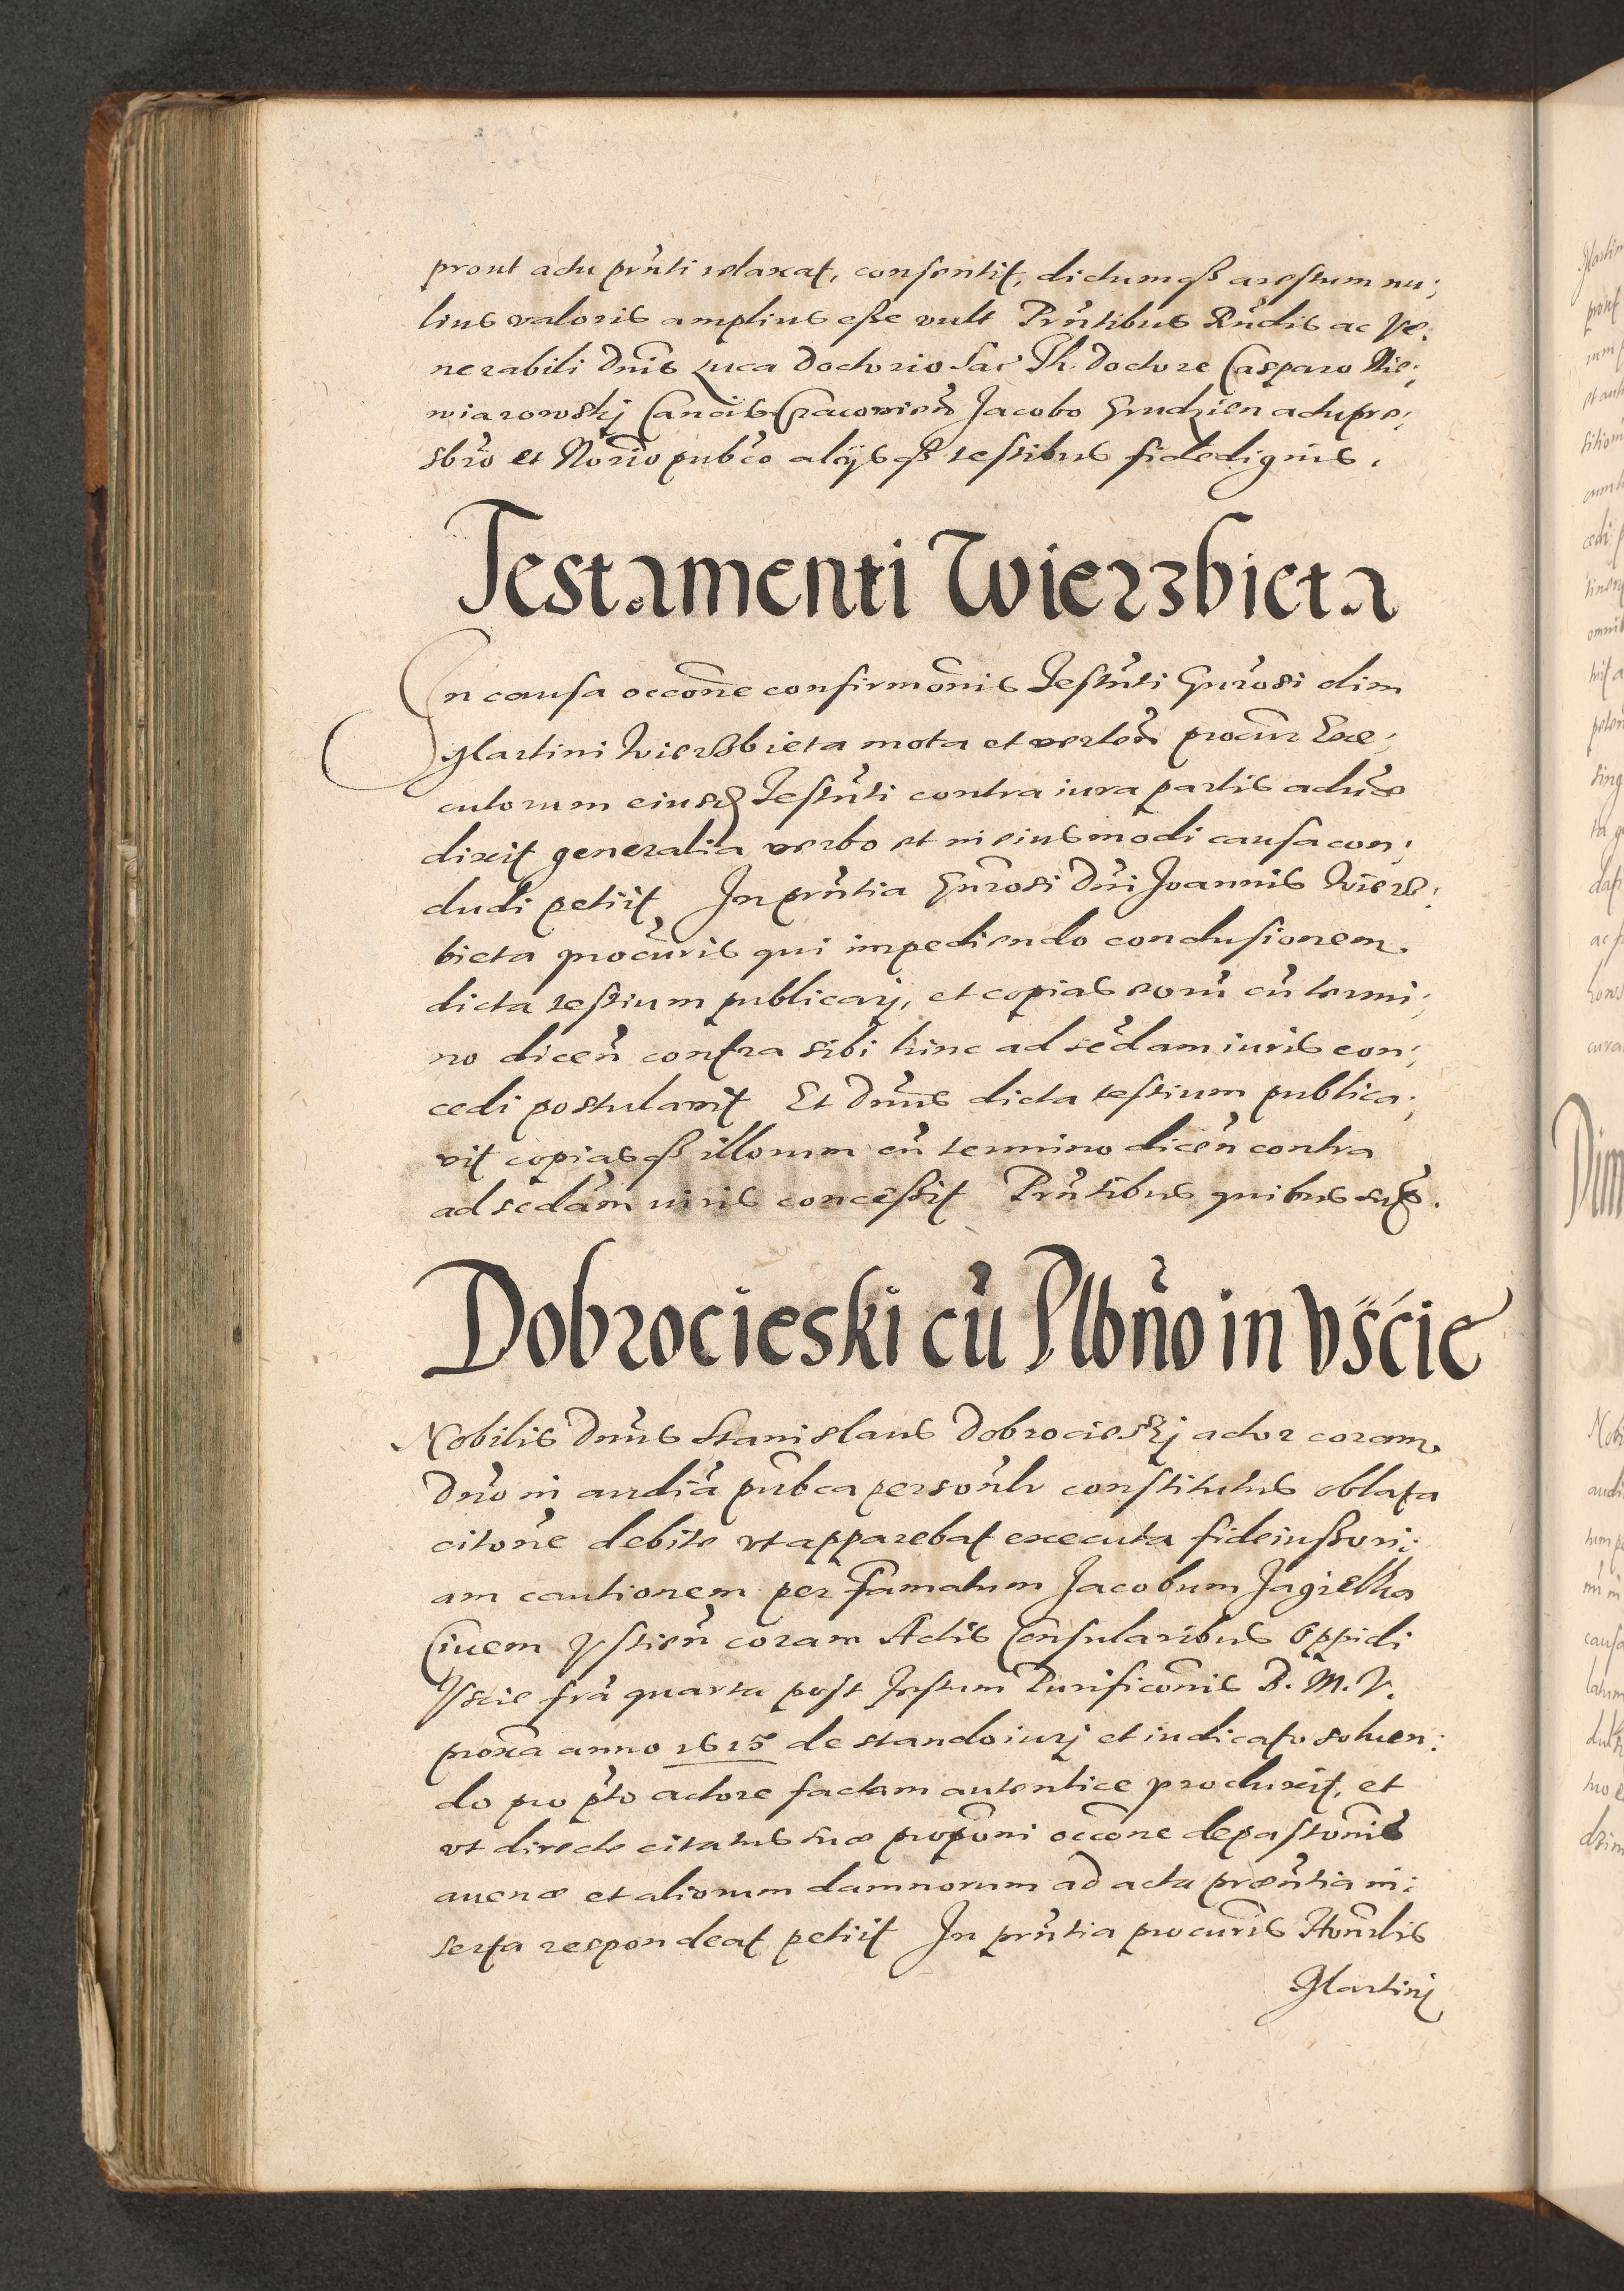 prout actu prñti relaxat, consentit, dictumqß arestum nu;
lius valoris amplius eße vult Prñtibus Rñdis ac Ve:
nerabili Dnis Luca Doctorio Sac Th. Doctore Casparo Nie;
wiarowskj Cancis Cracovien Jacobo Grudzien adu pre;
sbro et Norio pubco alijsqß testibus fidedignis.
Testamenti Wierzbieta
In causa occone confirmonis Testñti Gnrosi olim
Martini Wierzbieta mota et verten procur Exe;
cutorum eiusd Testñti contra iura partis aduse
dixit generalia verbo et in eiusmodi causa con;
cludi petiit In prñtia Gnrosi Dni Joannis Wierz:
bieta procuris qui impediendo conclusionem
dicta testium publicarj, et copias eorũ cũ termi;
no dicen contra sibi hinc ad scdam iuris con;
cedi postulavit Et Dnus dicta testium publica;
vit copiasqß illorum cũ termino dicen contra
ad scdam iuris conceßit Prñtibus quibus sup.
Dobrocieski cũ Plbño in Vście
Nobilis Dnus Stanislaus Dobrocieskj actor coram
Dno in audia pubca personlr constitutus oblata
citone debite vt apparebat executa fideiußori;
am cautionem per famatum Jacobum Jagiellka
Ciuem Vstien coram Actis Consularibus Oppidi
Vscie fra quarta post festum Purificonis B. M. V.
proxa anno 1615 de stando iurj et iudicato soluen:
do pro pto actore factam autentice produxit, et
vt directe citatus suæ proponi occone depastonis
auenæ et aliorum damnorum ad acta præntia in:
serta respondeat petiit In prñtia procuris Honrlis
Martinj